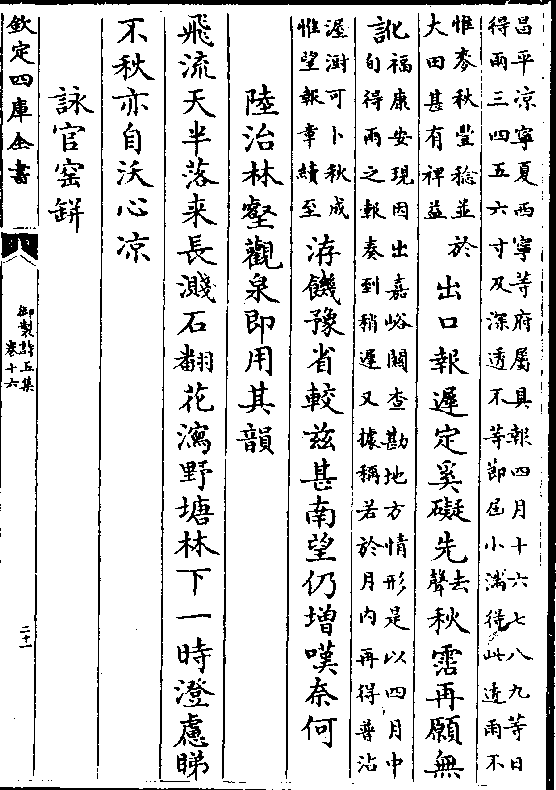 昌平凉寧夏西寧等府屬具報四月十六七八九等日
得雨三四五六寸及深透不等節屆小滿得此透雨不
惟麥秋豐稔並於
大田甚有裨益
出口報遲定奚礙先聲去秋霑再願無
訛福康安現因出嘉峪關查勘地方情形是以四月中
旬得雨之報奏到稍遲又據稱若於月内再得普沾
渥澍可卜秋成
惟望報章續至
洊饑豫省較兹甚南望仍增嘆奈何
陸治林壑觀泉即用其韻
飛流天半落来長濺石翻花瀉野塘林下一時澄慮睇
不秋亦自沃心凉
詠官窑缾
欽定四庫全書
御製詩五集
卷十六
二十一